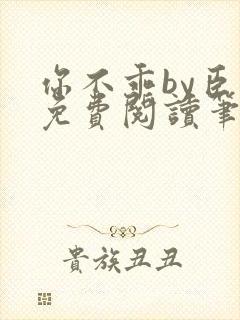 你不乖by臣
免費閱讀筆
貴族丑丑